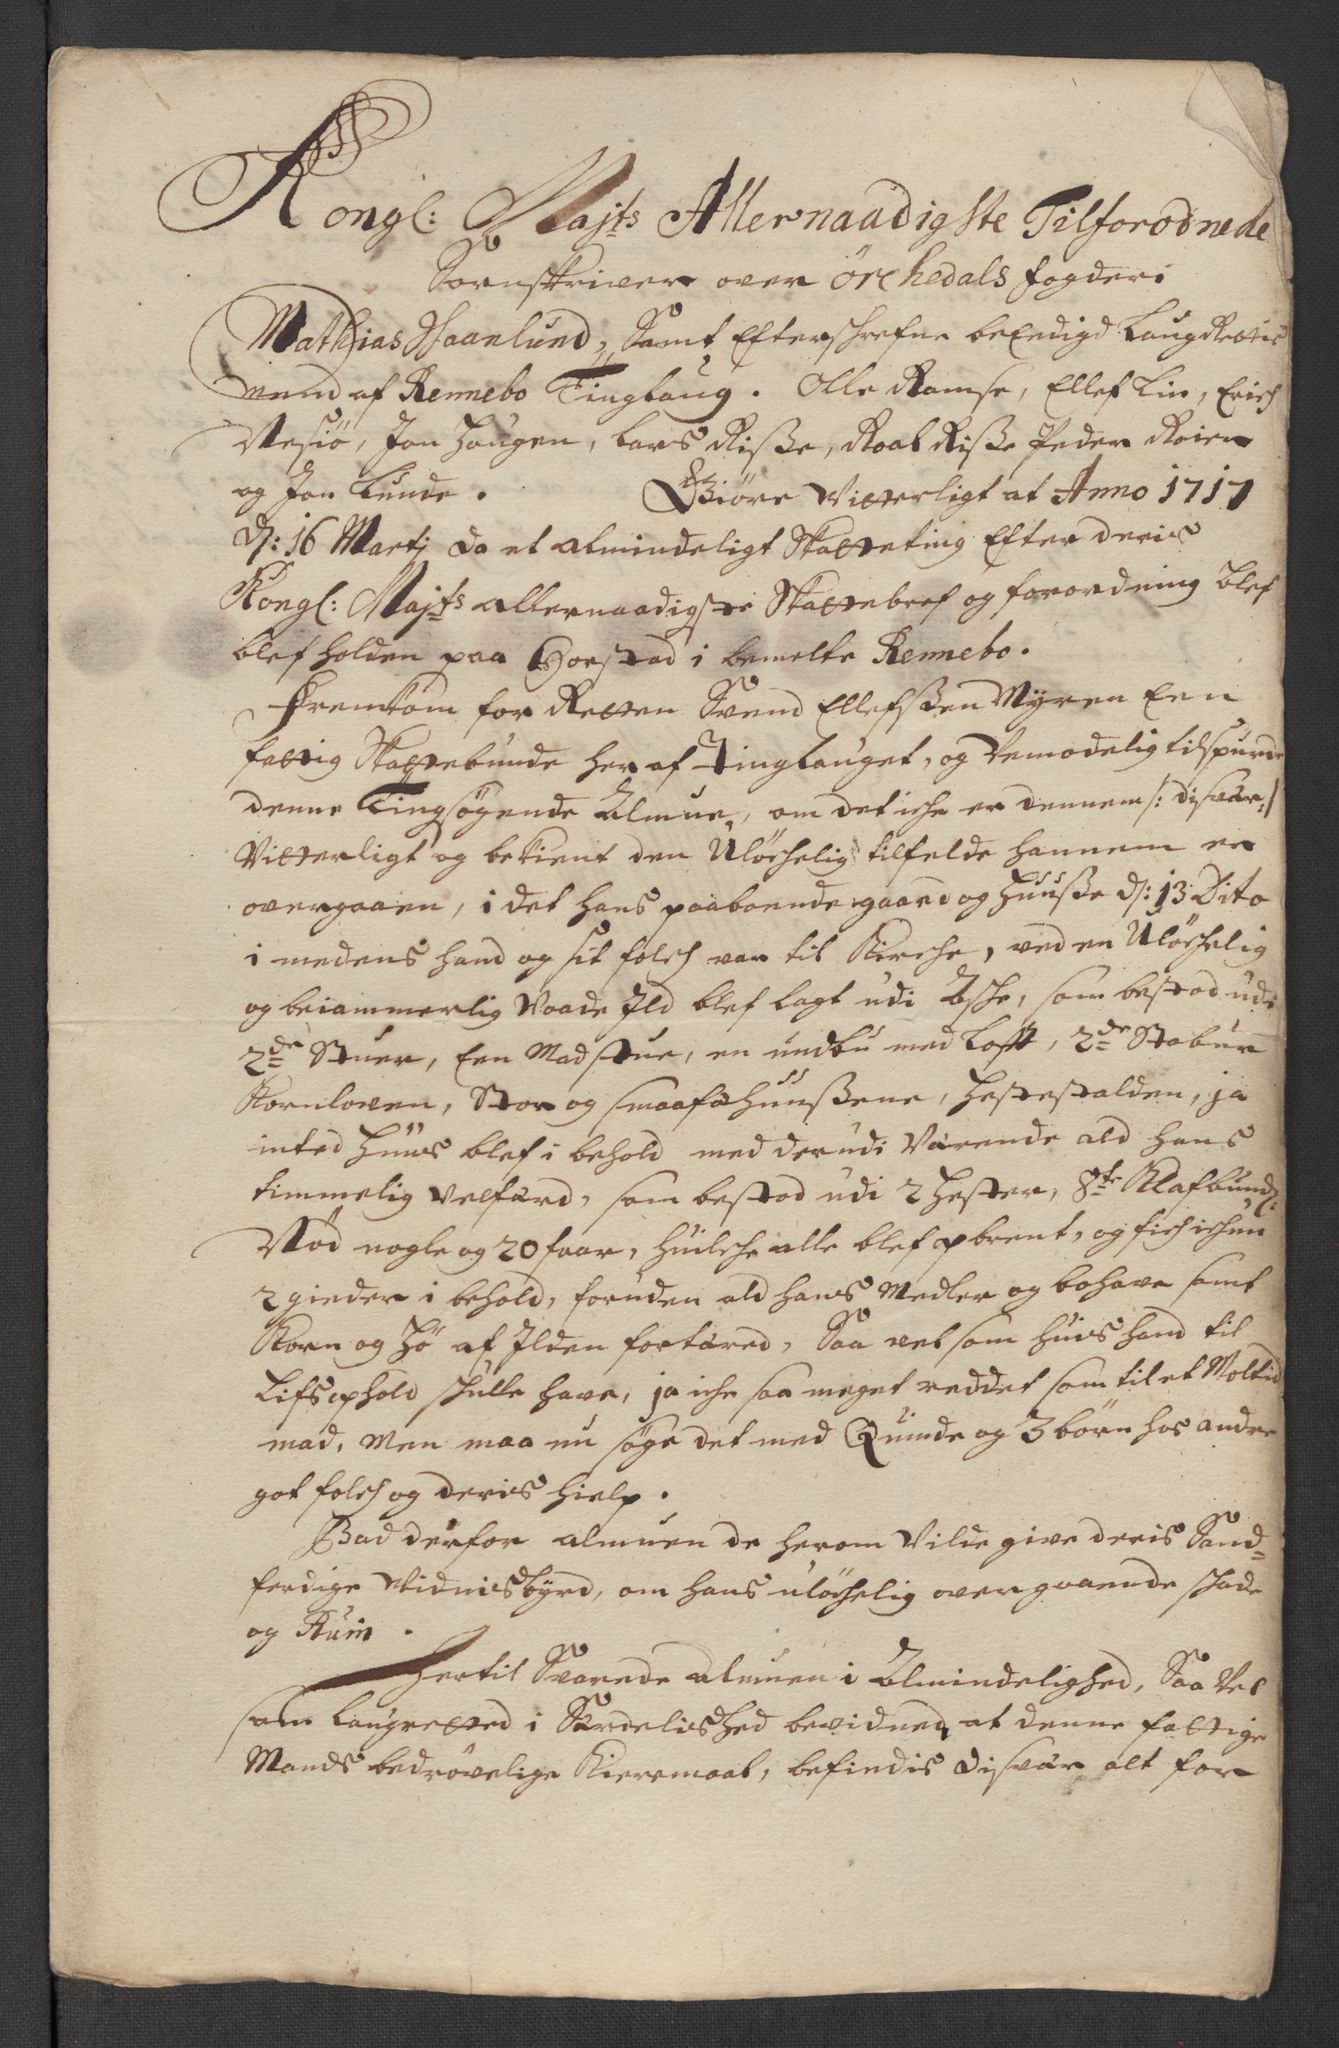 Kongl: Majts Allernaadigste Tilforodnede
Sornskriver over Örchedals fogderi
Mathias Haanlund, Samt Efterschrefne beEdigd LaugRettis
mend af Rennebo Tinglaug. Olle Ramse, Ellef Lin, Erich
Nesiö, Jon Haugen, Lars Risße, Roal Risße Peder Roien
og Jon Lunde. Giöre Vitterligt at Anno 1717
d: 16 Martj da et almindeligt Skatteting Efter deris
Kongl: Majts allernaadigste Skattebref og forordning blef
blef holden paa Horstad i bemelte Rennebo.
Fremkom for Retten Svend Ellefsßen Myren Een
fattig Skattebunde her af Tinglauget, og Vemodelig tilspurde
denne Tingsögende Almue, om det iche er dennem /: disvær :/
Vitterligt og bekient den Ulöchelig tilfelde hannem er
overgaaen, i det hans paaboende gaard og Huusße d: 13 Dito
i medens hand og sit folch var til Kirche, ved en Ulöchelig
og beiammerlig Vaade Ild blef lagt udi Asche, som bestod udi
2de Stuer, Een Madstue, en undbu med Loft, 2de Stabur
Kornloven, Stor og smaafæhuusßene, Hestestalden, ja
inted Huus blef i behold med derudi Værende ald hans
timmelig Velfærd, som bestod udi 2 Hester, 8te Klafbund:
Nöd nogle og 20 faar, huilche alle blef opbrent, og fich ichun
2 gieder i behold, foruden ald hans Medler og bohave samt
Korn og Hö af Ilden fortæred, Saa vel som huis hand til
Lifs ophold schulle have, ja iche saa meget reddet som til et Moltid
mad, Men maa nu söge det med Quinde og 3 börn hos andre
got folch og deris hielp.
Bad derfor almuen de herom Vilde give deris Sand-
ferdige Vidnisbyrd, om hans ulöchelig overgaaende schade
og Ruin.
Hertil Svarede almuen i Almindelighed, Saa Vel
som Laugretted i Særdelished bevidned, at denne fattige
Mands bedrövelige Kieremaal, befindis disvær alt for